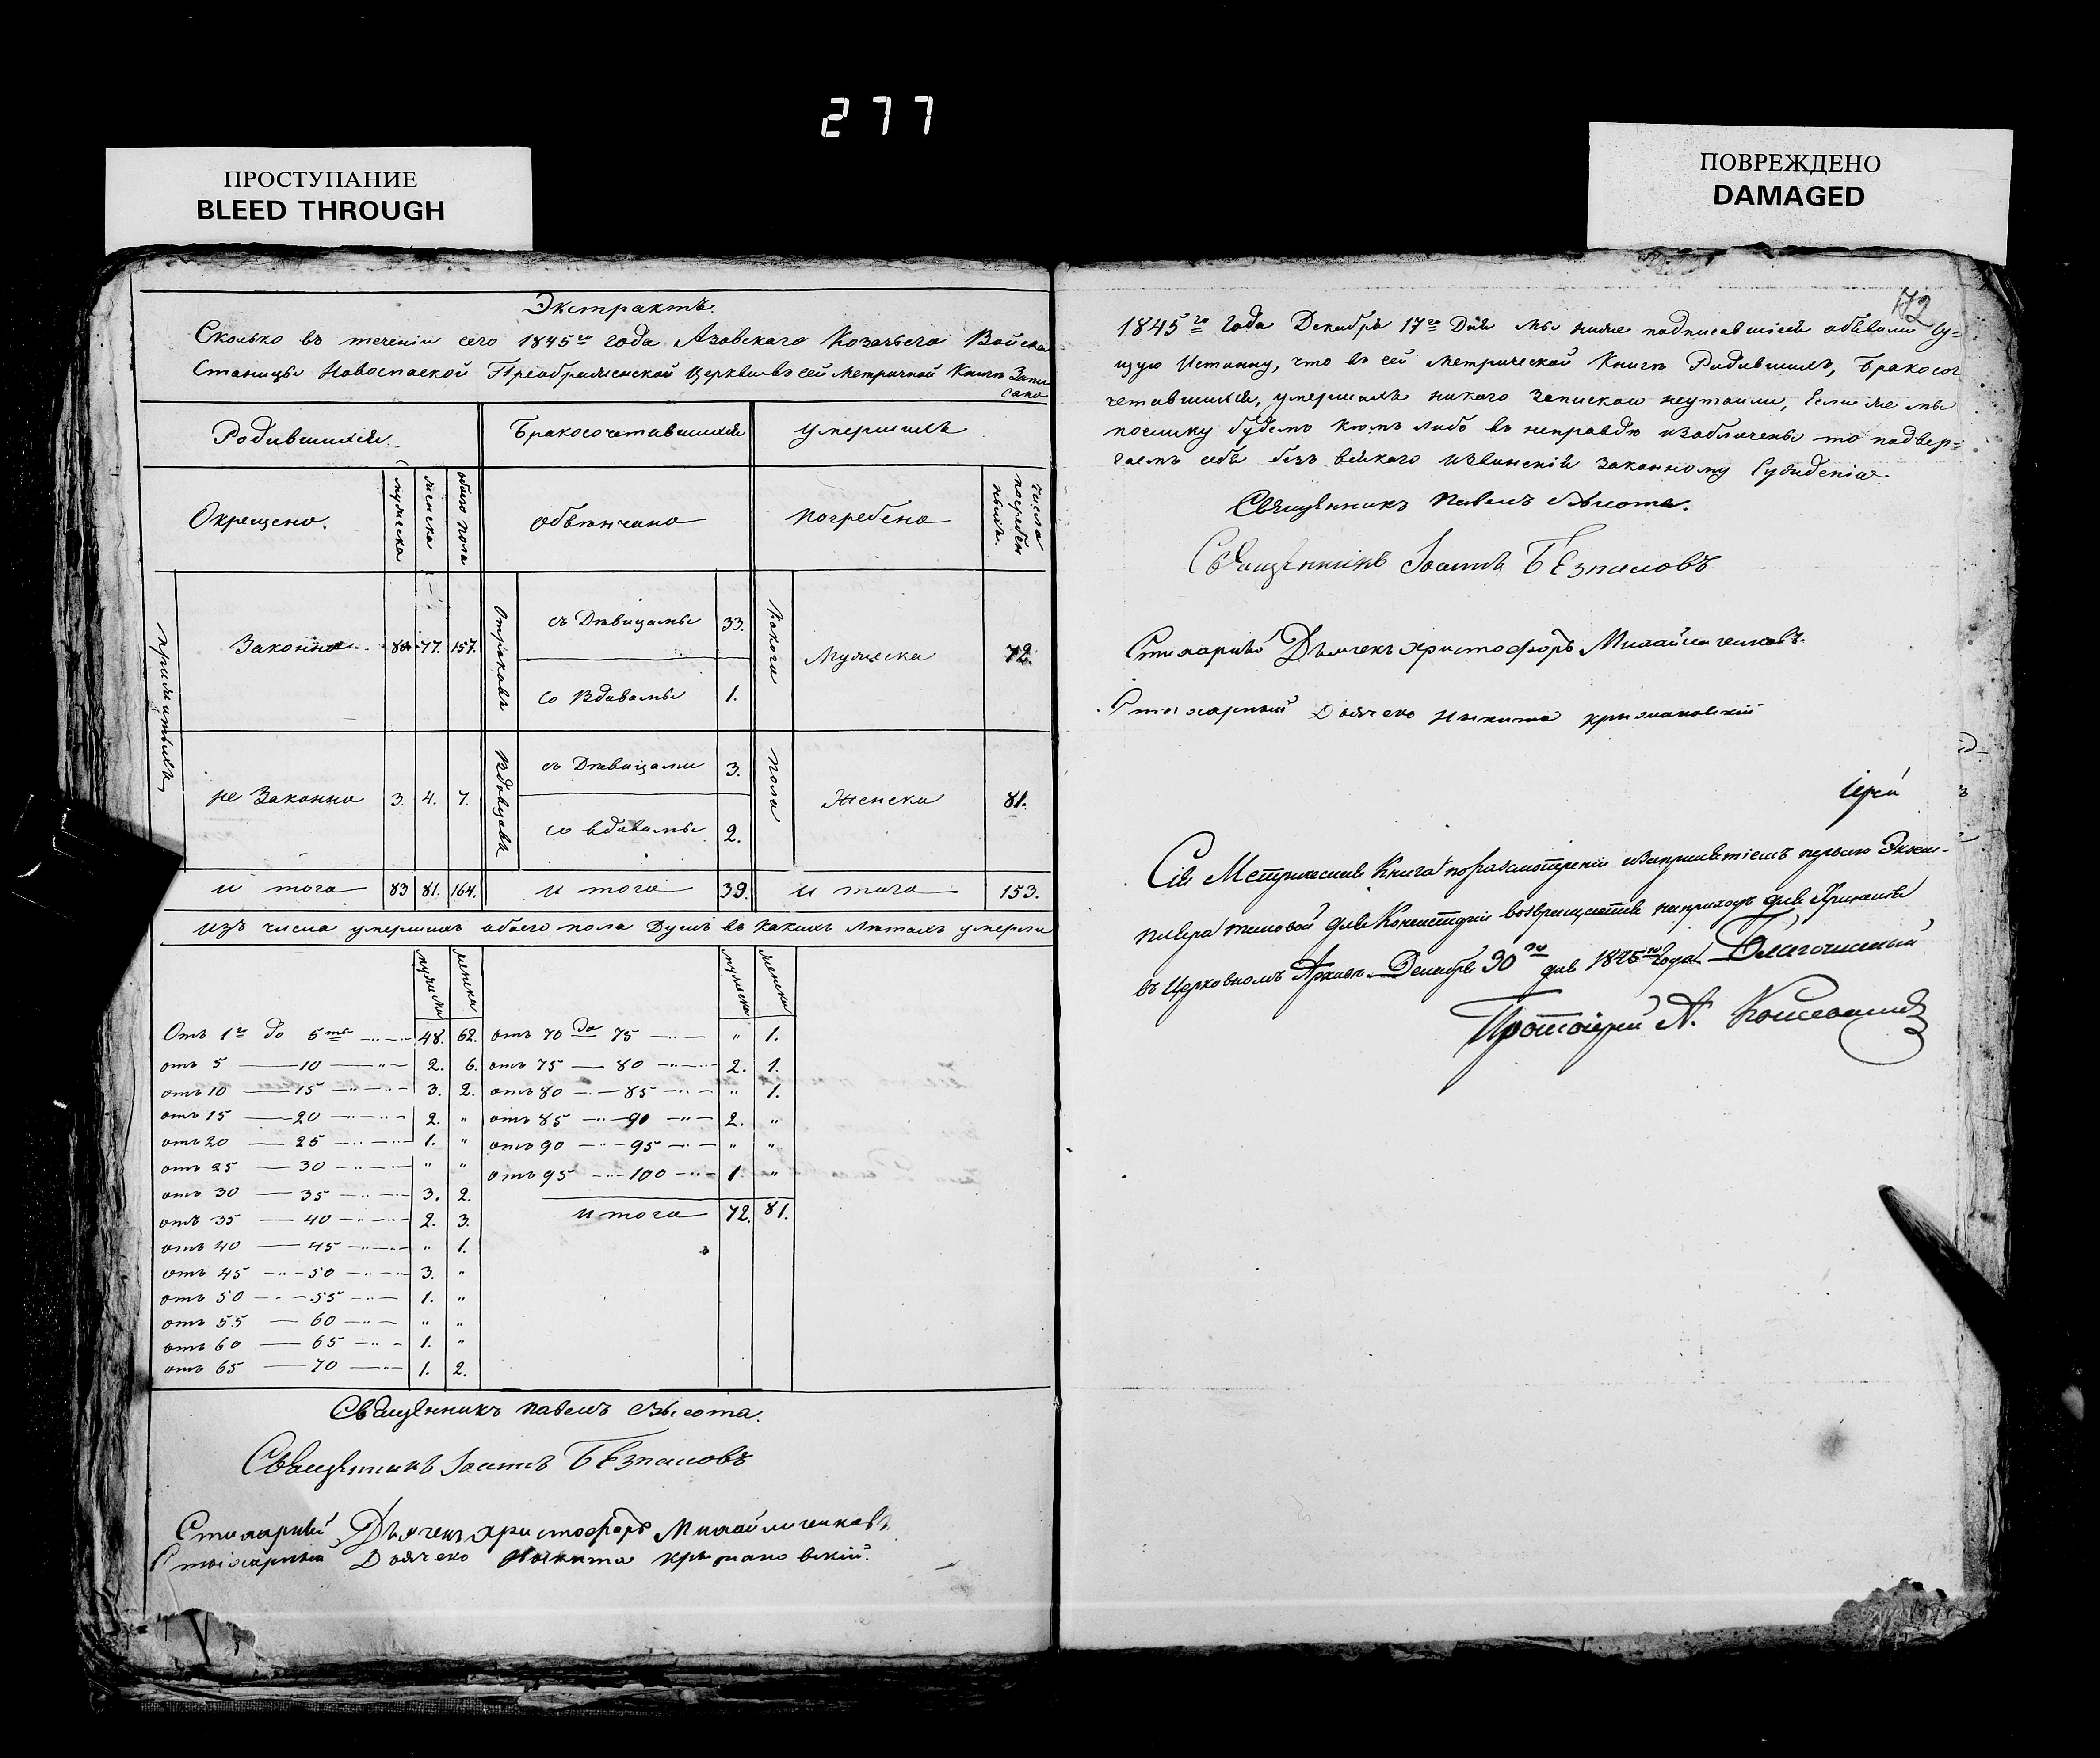 277
ПРОСТУПАНИЕ
BLEED THROUGH
ПОВРЕЖДЕНО
DAMAGED
Экстрактъ.
Сколько въ теченіи сего 1845го года Азовскаго Козачьего Войска
Станицы Новоспаской Преображенской Церкви въ сей Метричной Книги Запи
сано
Родившихся. Бракосочетавшихся умершихъ
Окрещено. мужеска женска обого пола обвѣнчано погребено число погребен ныхъ.
прижитыхъ
Законно 80 77. 157. Отроковъ съ Дѣвицамы 33. Какого Мужеска 72.
со Вдовамы 1.
не Законно 3. 4. 7. Вдовцовъ съ Дѣвицами 3. пола Женска 81.
со вдовамы 2.
и того 83 81. 164. и того 39. и того 153.
изъ числа умершихъ обоего пола Душъ въ какихъ лѣтахъ умерли
мужеска женска мужеска женска
Отъ 1го до 5ть 48. 62. отъ 70 до 75 " 1.
отъ 5 — 10 2. 6. отъ 75 — 80 2. 1.
отъ 10 — 15 3. 2. отъ 80 — 85 " 1.
отъ 15 — 20 2. " отъ 85 — 90 2. "
отъ 20 — 25 1. " отъ 90 — 95 " "
отъ 25 — 30 " " отъ 95 — 100 1. "
отъ 30 — 35 3. 2.
отъ 35 — 40 2. 3. и того 72. 81.
отъ 40 — 45 " 1.
отъ 45 — 50 3. "
отъ 50 — 55 1. "
отъ 55 — 60 " "
отъ 60 — 65 1. "
отъ 65 — 70 1. 2.
Священникъ Павелъ Высота.
Священникъ Іоаннъ Безпаловъ
Стихарній Дьячекъ Христофоръ
Стихарный Дьячекъ Никита Крыжановскій.
172
1845го года Декабря 17го Дня мы ниже подписавшіеся объявили су=
щую Истинну, что въ сей метрической Книги Родившихъ, Бракосо
четавшихся, умершихъ никого Запискою неутоили, Если же мы
поелику будемъ кѣмъ либо въ неправдѣ изобличены то подвер=
гаемъ себя безъ всякого извиненія законному Сужденію
Священникъ Павелъ Высота.
Священникъ Іоаннъ Безпаловъ
Стихарній Дьячекъ Христофоръ
Стихарный Дьячекъ Никита Крыжановскій
Іерей
Сія Метрическая Книга по разсмотреніи
для Консисторіи возвращается на приходъ для храненія
въ Церковномъ Архивѣ Декабря 30го дня 1845го года. Благочинный
Протоіерей А.